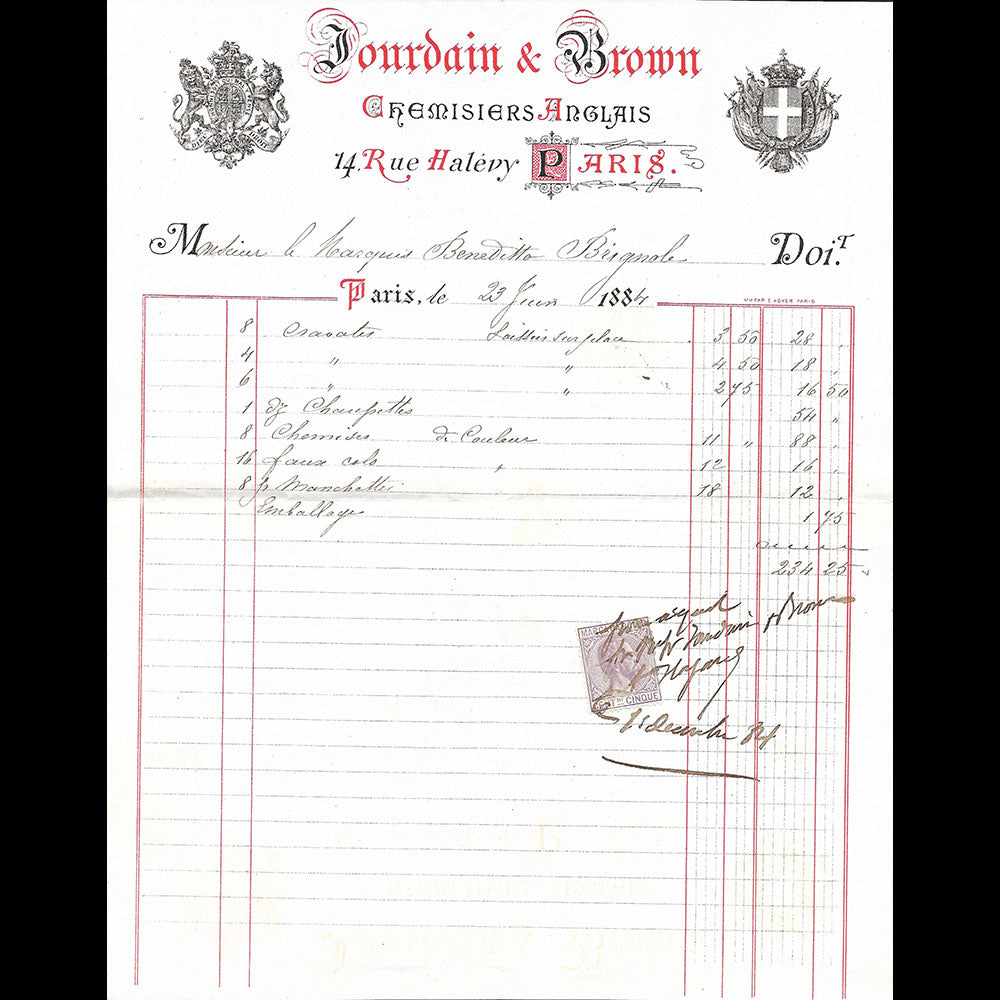 Jourdain & Brown
Chemisiers Anglais
14, Rue Halévy Paris.
Monsieur le Marquis Beneditto Brignole Doi.t
Paris, le 23 Juin 1884
8 Cravates Laissées sur place 3 50 28 "
4 " " 4 50 18 "
6 " " 2 75 16 50
1 dz Chaussettes 54 "
8 Chemises de Couleur 11 " 88 "
16 faux cols " 12 16 "
8 p Manchettes 18 12 "
Emballage 1 75
234 25
Pour acquit
Jourdain & Brown
MARCA DA BOLLO
CENT.MI CINQUE
décembre 84